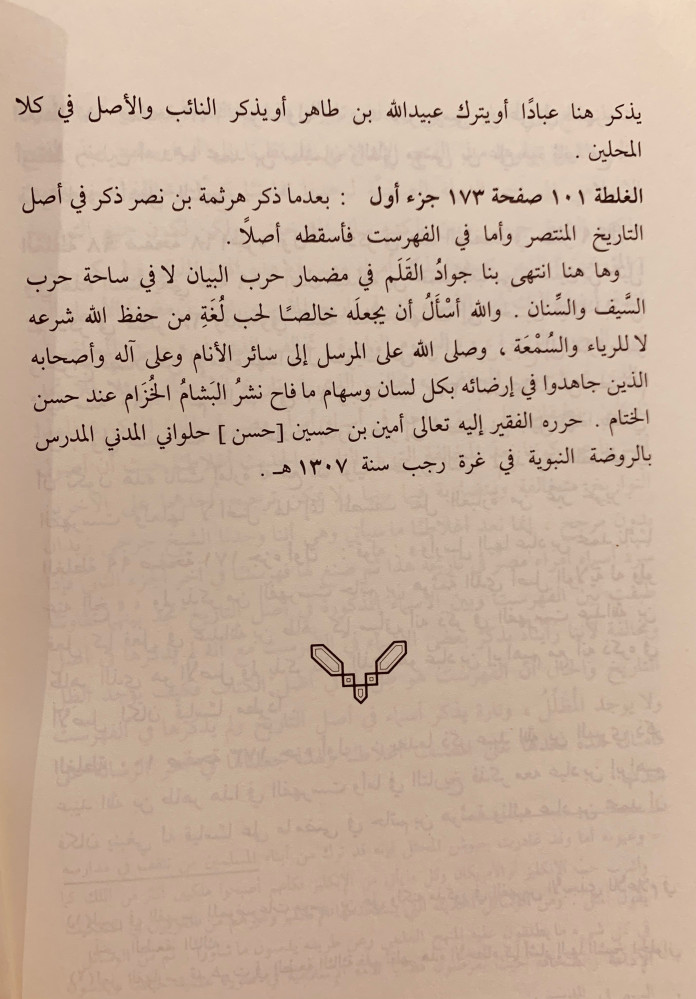 يذكر هنا عبادًا أويترك عبيدالله بن طاهر أويذكر النائب والأصل في كلا
المحلين .
الغلطة ١٠١ صفحة ١٧٣ جزء أول : بعدما ذكر هرثمة بن نصر ذكر في أصل
التاريخ المنتصر وأما في الفهرست فأسقطه أصلاً .
وها هنا انتهى بنا جوادُ القَلَم في مضمار حرب البيان لا في ساحة حرب
السَّيف والسِّنان . والله أسْأَلُ أن يجعلَه خالصًا لحب لُغَةِ من حفظ الله شرعه
لا للرياء والسُمْعَة ، وصلى الله على المرسل إلى سائر الأنام وعلى آله وأصحابه
الذين جاهدوا في إرضائه بكل لسان وسهام ما فاح نشرُ البَشامُ الخُزَام عند حسن
الختام . حرره الفقير إليه تعالى أمين بن حسين [حسن] حلواني المدني المدرس
بالروضة النبوية في غرة رجب سنة ١٣٠٧ هـ .